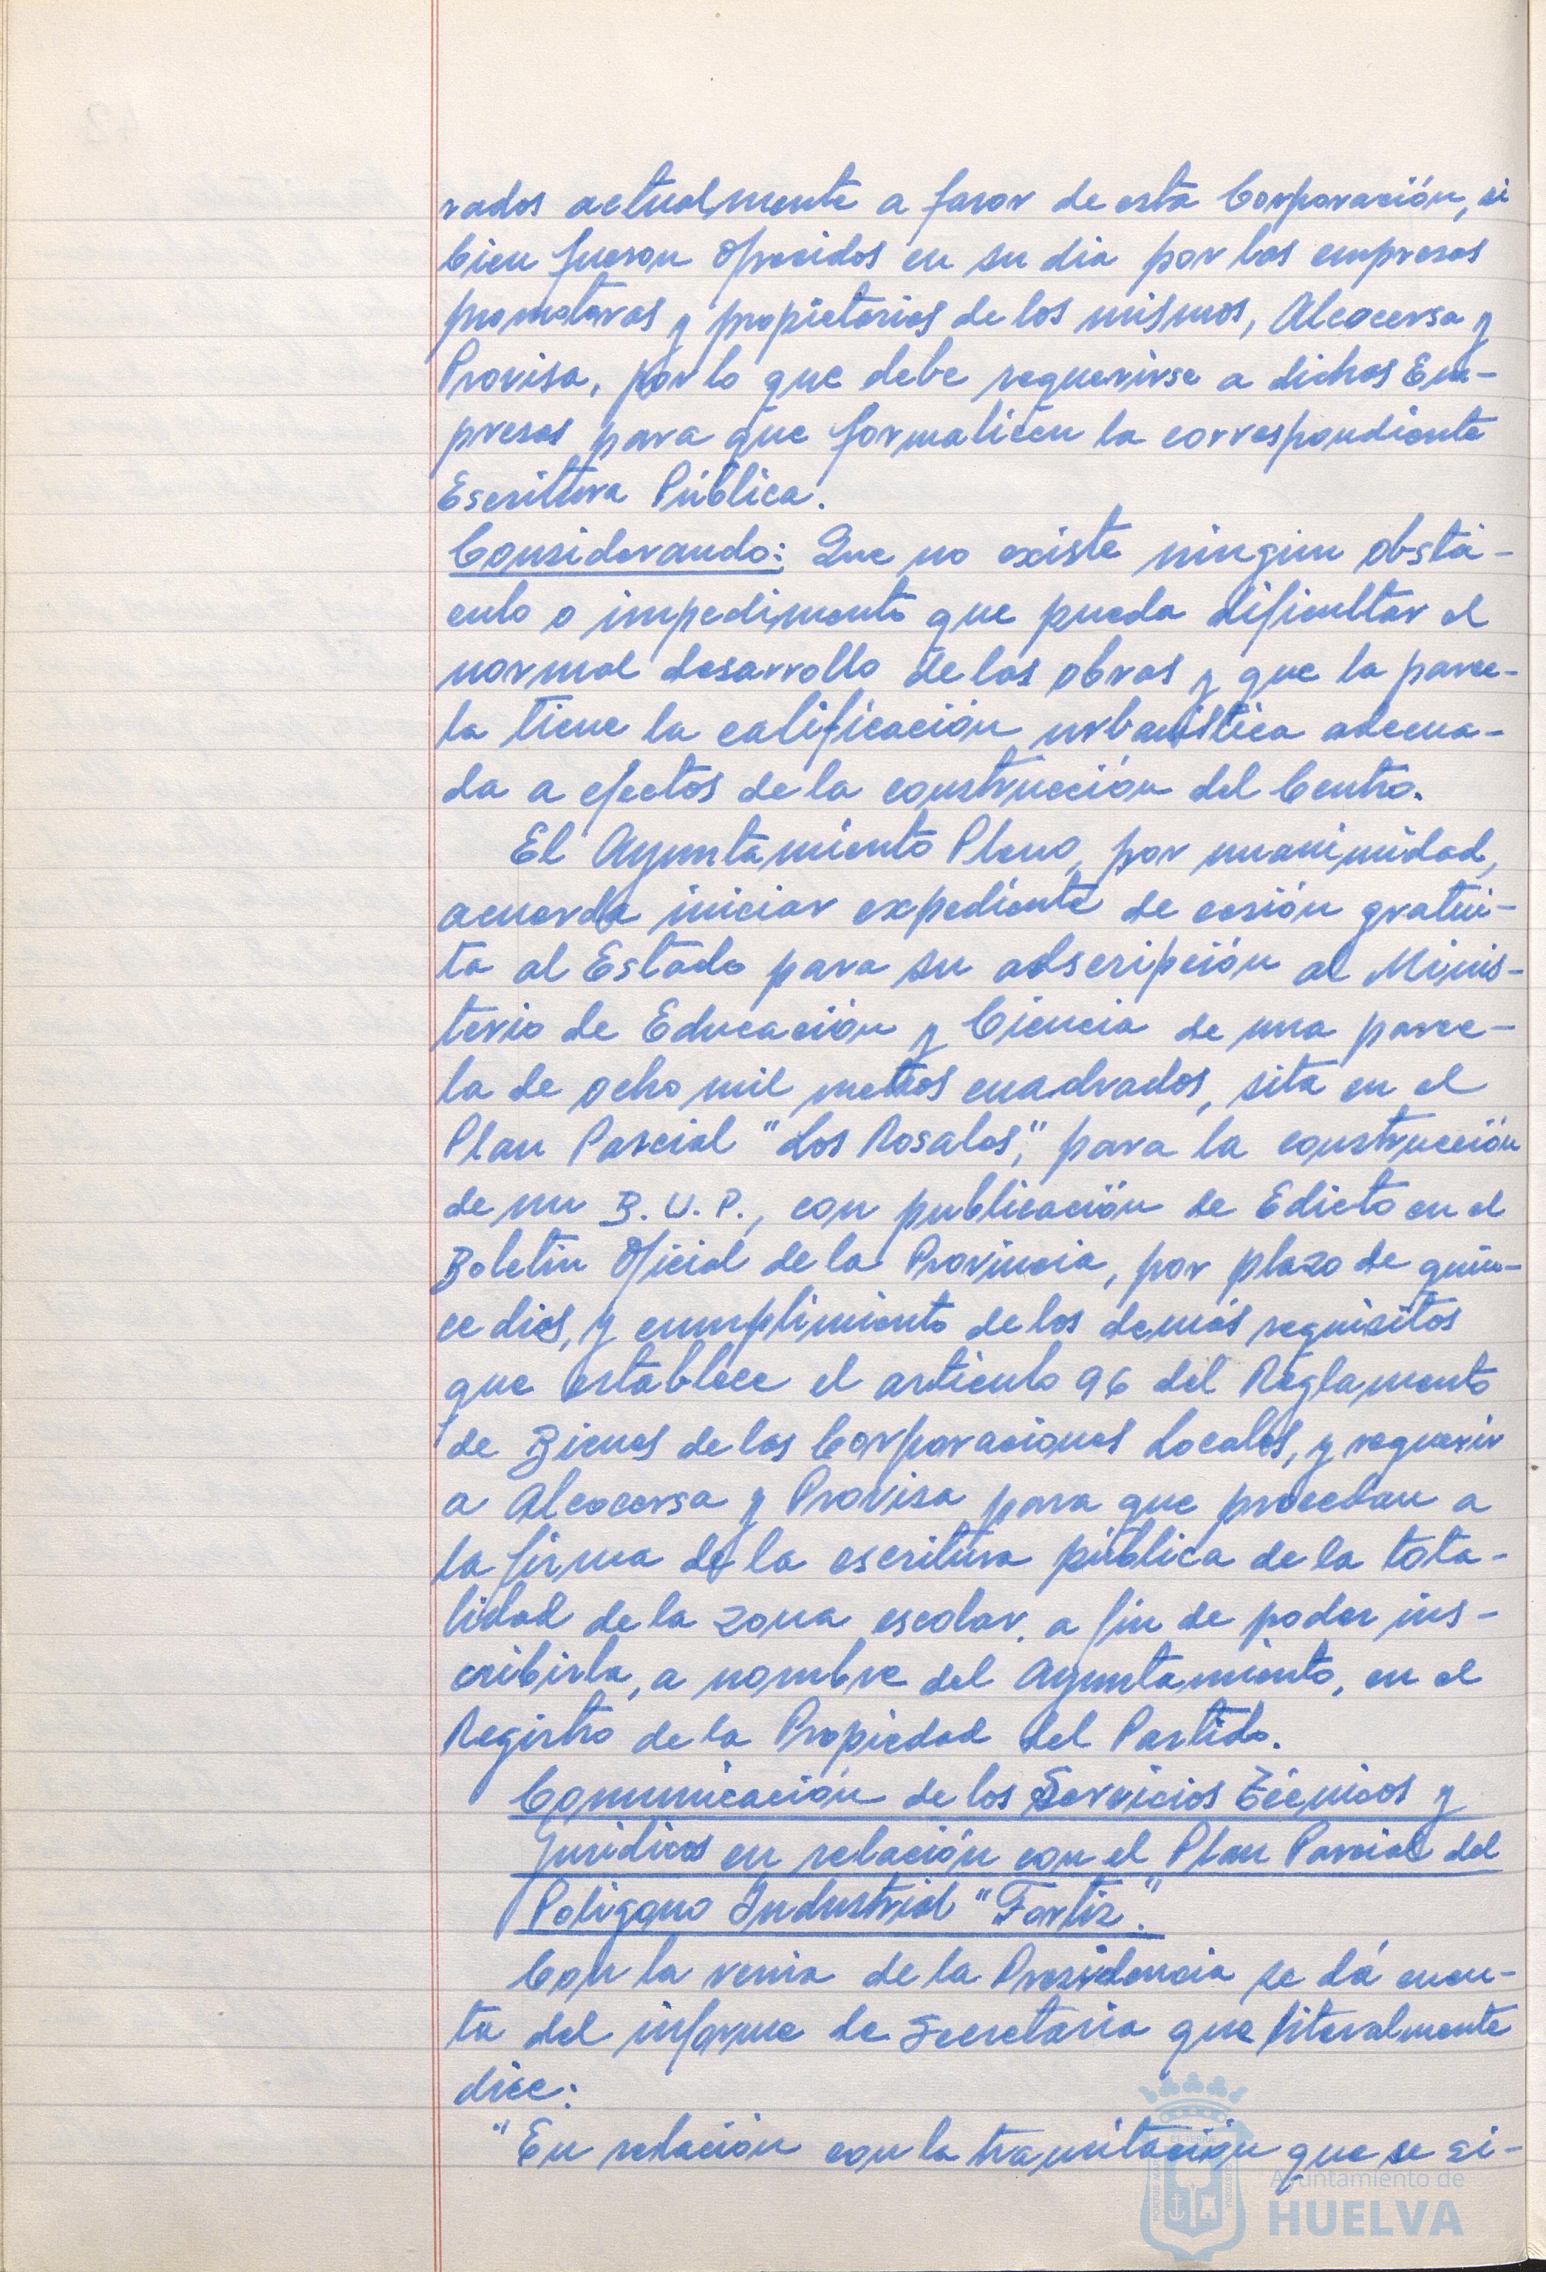 rados actualmente a favor de esta Corporación, si
bien fueron ofrecidos en su dia por las empresas
promotoras y propietarias de los mismos, Alcocersa y
Provisa, por lo que debe requerirse a dichas Em-
presas para que formalicen la correspondiente
Escritura Pública.
Considerando: Que no existe ningun obstá-
culo o impedimento que pueda dificultar el
normal desarrollo de las obras y que la parce-
la tiene la calificación urbanística adecua-
da a efectos de la construcción del Centro.
El Ayuntamiento Pleno, por unanimidad,
acuerda iniciar expediente de cesión gratui-
ta al Estado para su adscripción al Minis-
terio de Educación y Ciencia de una parce-
la de ocho mil metros cuadrados, sita en el
Plan Parcial "Los Rosales", para la construcción
de un B.U.P., con publicación de Edicto en el
Boletin Oficial de la Provincia, por plazo de quin-
ce dias, y cumplimiento de los demás requisitos
que establece el articulo 96 del Reglamento
de Bienes de las Corporaciones Locales, y requerir
a Alcocersa y Provisa para que procedan a
la firma de la escritura pública de la tota-
lidad de la zona escolar, a fin de poder ins-
cribirla, a nombre del Ayuntamiento, en el
Registro de la Propiedad del Partido.
Comunicación de los Servicios Técnicos y
Juridicos en relación con el Plan Parcial del
Poligono Industrial "Fortiz".
Con la venia de la Presidencia se dá cuen-
ta del informe de Secretaria que literalmente
dice:
"En relación con la tramitación que se si-
Ayuntamiento de
HUELVA